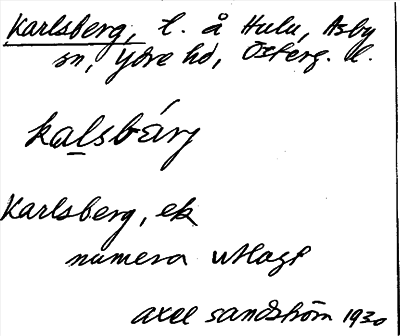 Karlsberg, t. å Hulu, Asby
sn, Ydre hd, Österg. l.
kalsbárj
Karlsberg, ek
numera utlagt
Axel Sandström 1930